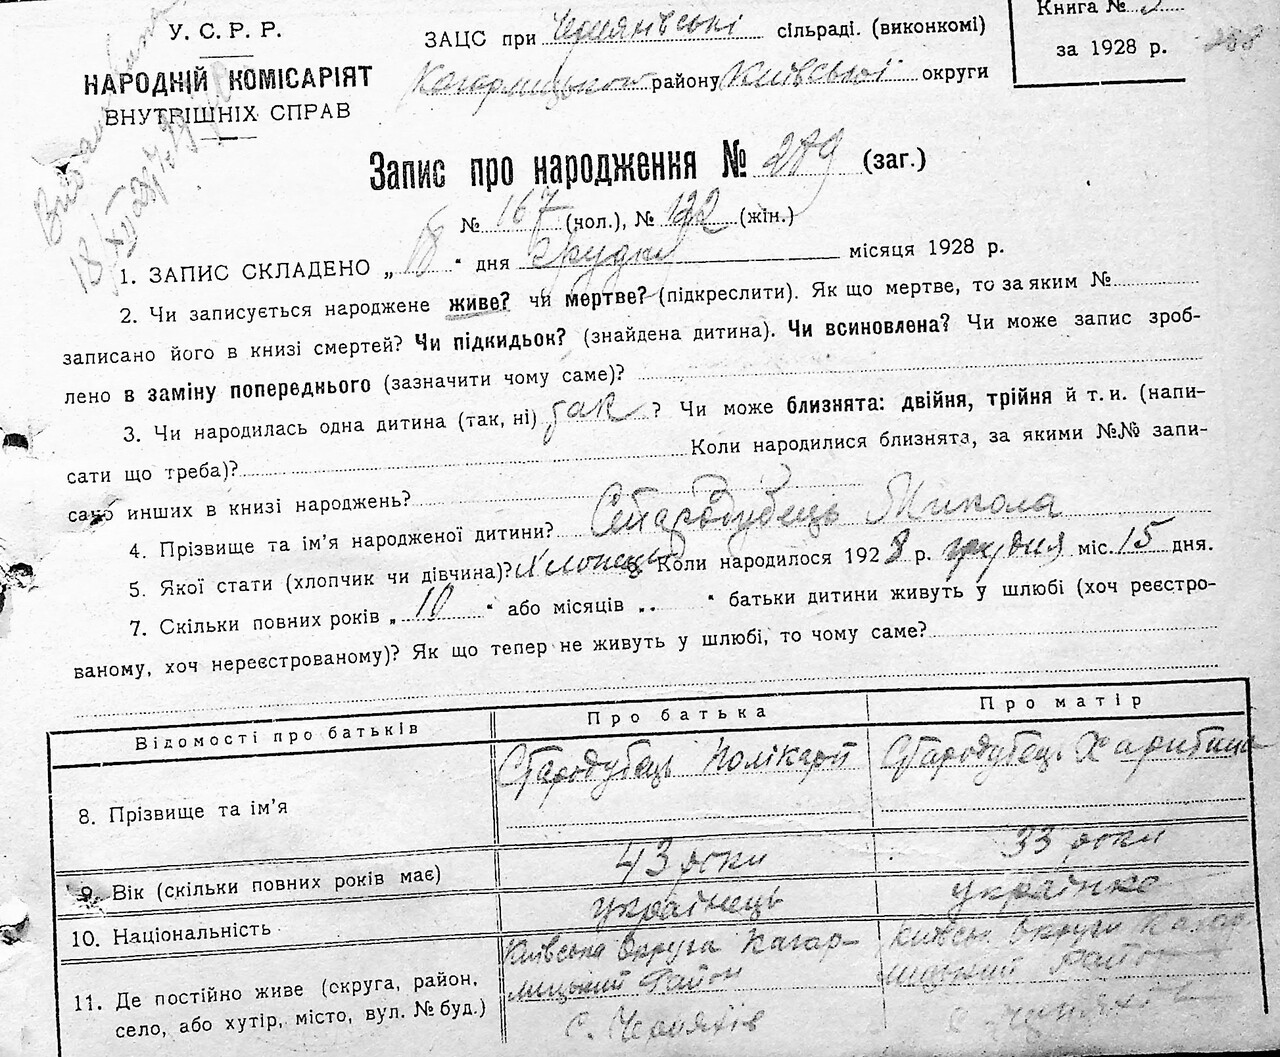 У. С. Р. Р.
НАРОДНІЙ КОМІСАРІЯТ
ВНУТРІШНІХ СПРАВ
ЗАЦС при Черняхівські сільраді. (виконкомі)
Кагарлицького району Київської округи
Книга №
за 1928 р.
288
18/XII
Запис про народження № 289 (заг.)
№ 167 (чол.), № 122 (жін.)
1. ЗАПИС СКЛАДЕНО „ 18 “ дня Грудня місяця 1928 р.
2. Чи записується народжене живе? чи мертве? (підкреслити). Як що мертве, то за яким №
записано його в книзі смертей? Чи підкидьок? (знайдена дитина). Чи всиновлена? Чи може запис зроб-
лено в заміну попереднього (зазначити чому саме)?
3. Чи народилась одна дитина (так, ні) так ? Чи може близнята: двійня, трійня й т. и. (напи-
сати що треба)? Коли народилися близнята, за якими №№ запи-
сано инших в книзі народжень?
4. Прізвище та ім’я народженої дитини? Стародубець Микола
5. Якої стати (хлопчик чи дівчина)? Хлопець Коли народилося 1928 р. грудня міс. 15 дня.
7. Скільки повних років „ 10 “ або місяців „ “ батьки дитини живуть у шлюбі (хоч реєстро-
ваному, хоч нереєстрованому)? Як що тепер не живуть у шлюбі, то чому саме?
Відомості про батьків Про батька Про матір
8. Прізвище та ім’я Стародубець Полікарп Стародубець Харитина
9. Вік (скільки повних років має) 43 роки 33 роки
10. Національність українець українка
11. Де постійно живе (округа, район,
село, або хутір, місто, вул. № буд.)
Київська Округа Кагар-
лицький Район
с. Черняхів
Київськ. Округи Кагар-
лицький Район
с. Черняхів